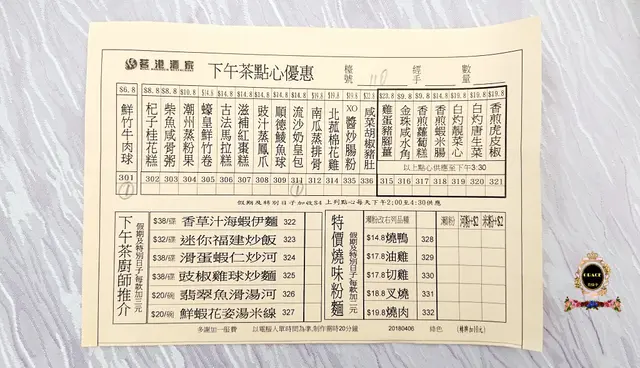 香港酒家
下午茶點心優惠
檯號 110
經手
數量
$6.8 鮮竹牛肉球 301
$8.8 杞子桂花糕 302
$8.8 柴魚咸骨粥 303
$14.8 潮州蒸粉果 304
$14.8 蠔皇鮮竹卷 305
$14.8 古法馬拉糕 306
$14.8 滋補紅棗糕 307
$14.8 豉汁蒸鳳爪 308
$14.8 順德鯪魚球 309
$14.8 流沙奶皇包 311
$14.8 南瓜蒸排骨 312
北菰棉花雞 314
XO醬炒腸粉 335
$22.8 咸菜胡椒豬肚 336
雞蛋豬腳薑 315
金珠咸水角 316
香煎蘿蔔糕 317
香煎蝦米腸 318
白灼靚菜心 319
白灼唐生菜 320
$19.8 香煎虎皮椒 321
以上點心供應至下午3:30
假期及特別日子加收$4 上列點心每天下午2:00至4:30供應
下午茶廚師推介
假期及特別日子每款加三元
$38/碟 香草汁海蝦伊麵 322
$32/碟 迷你福建炒飯 323
$38/碟 滑蛋蝦仁炒河 324
$38/碟 豉椒雞球炒麵 325
$20/碗 翡翠魚滑湯河 326
$20/碗 鮮蝦花姿湯米線 327
特價燒味粉麵
假期及特別日子每款加二元
瀨粉改右列品種 瀨粉 河粉+$2 米粉+$2
$14.8 燒鴨 328
$17.8 油雞 329
$17.8 切雞 330
$18.8 叉燒 331
$19.8 燒肉 332
多謝加一服費 以電腦入單時間為準,制作需時20分鐘 20180406 綠色
GRACE